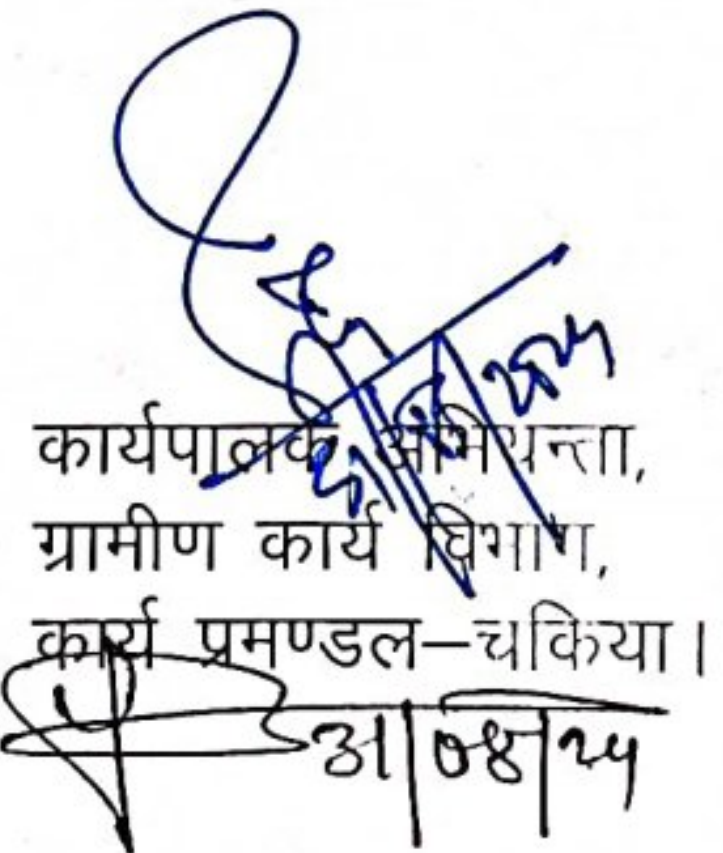 कार्यपालक अभियन्ता,
ग्रामीण कार्य विभाग,
कार्य प्रमण्डल–चकिया।